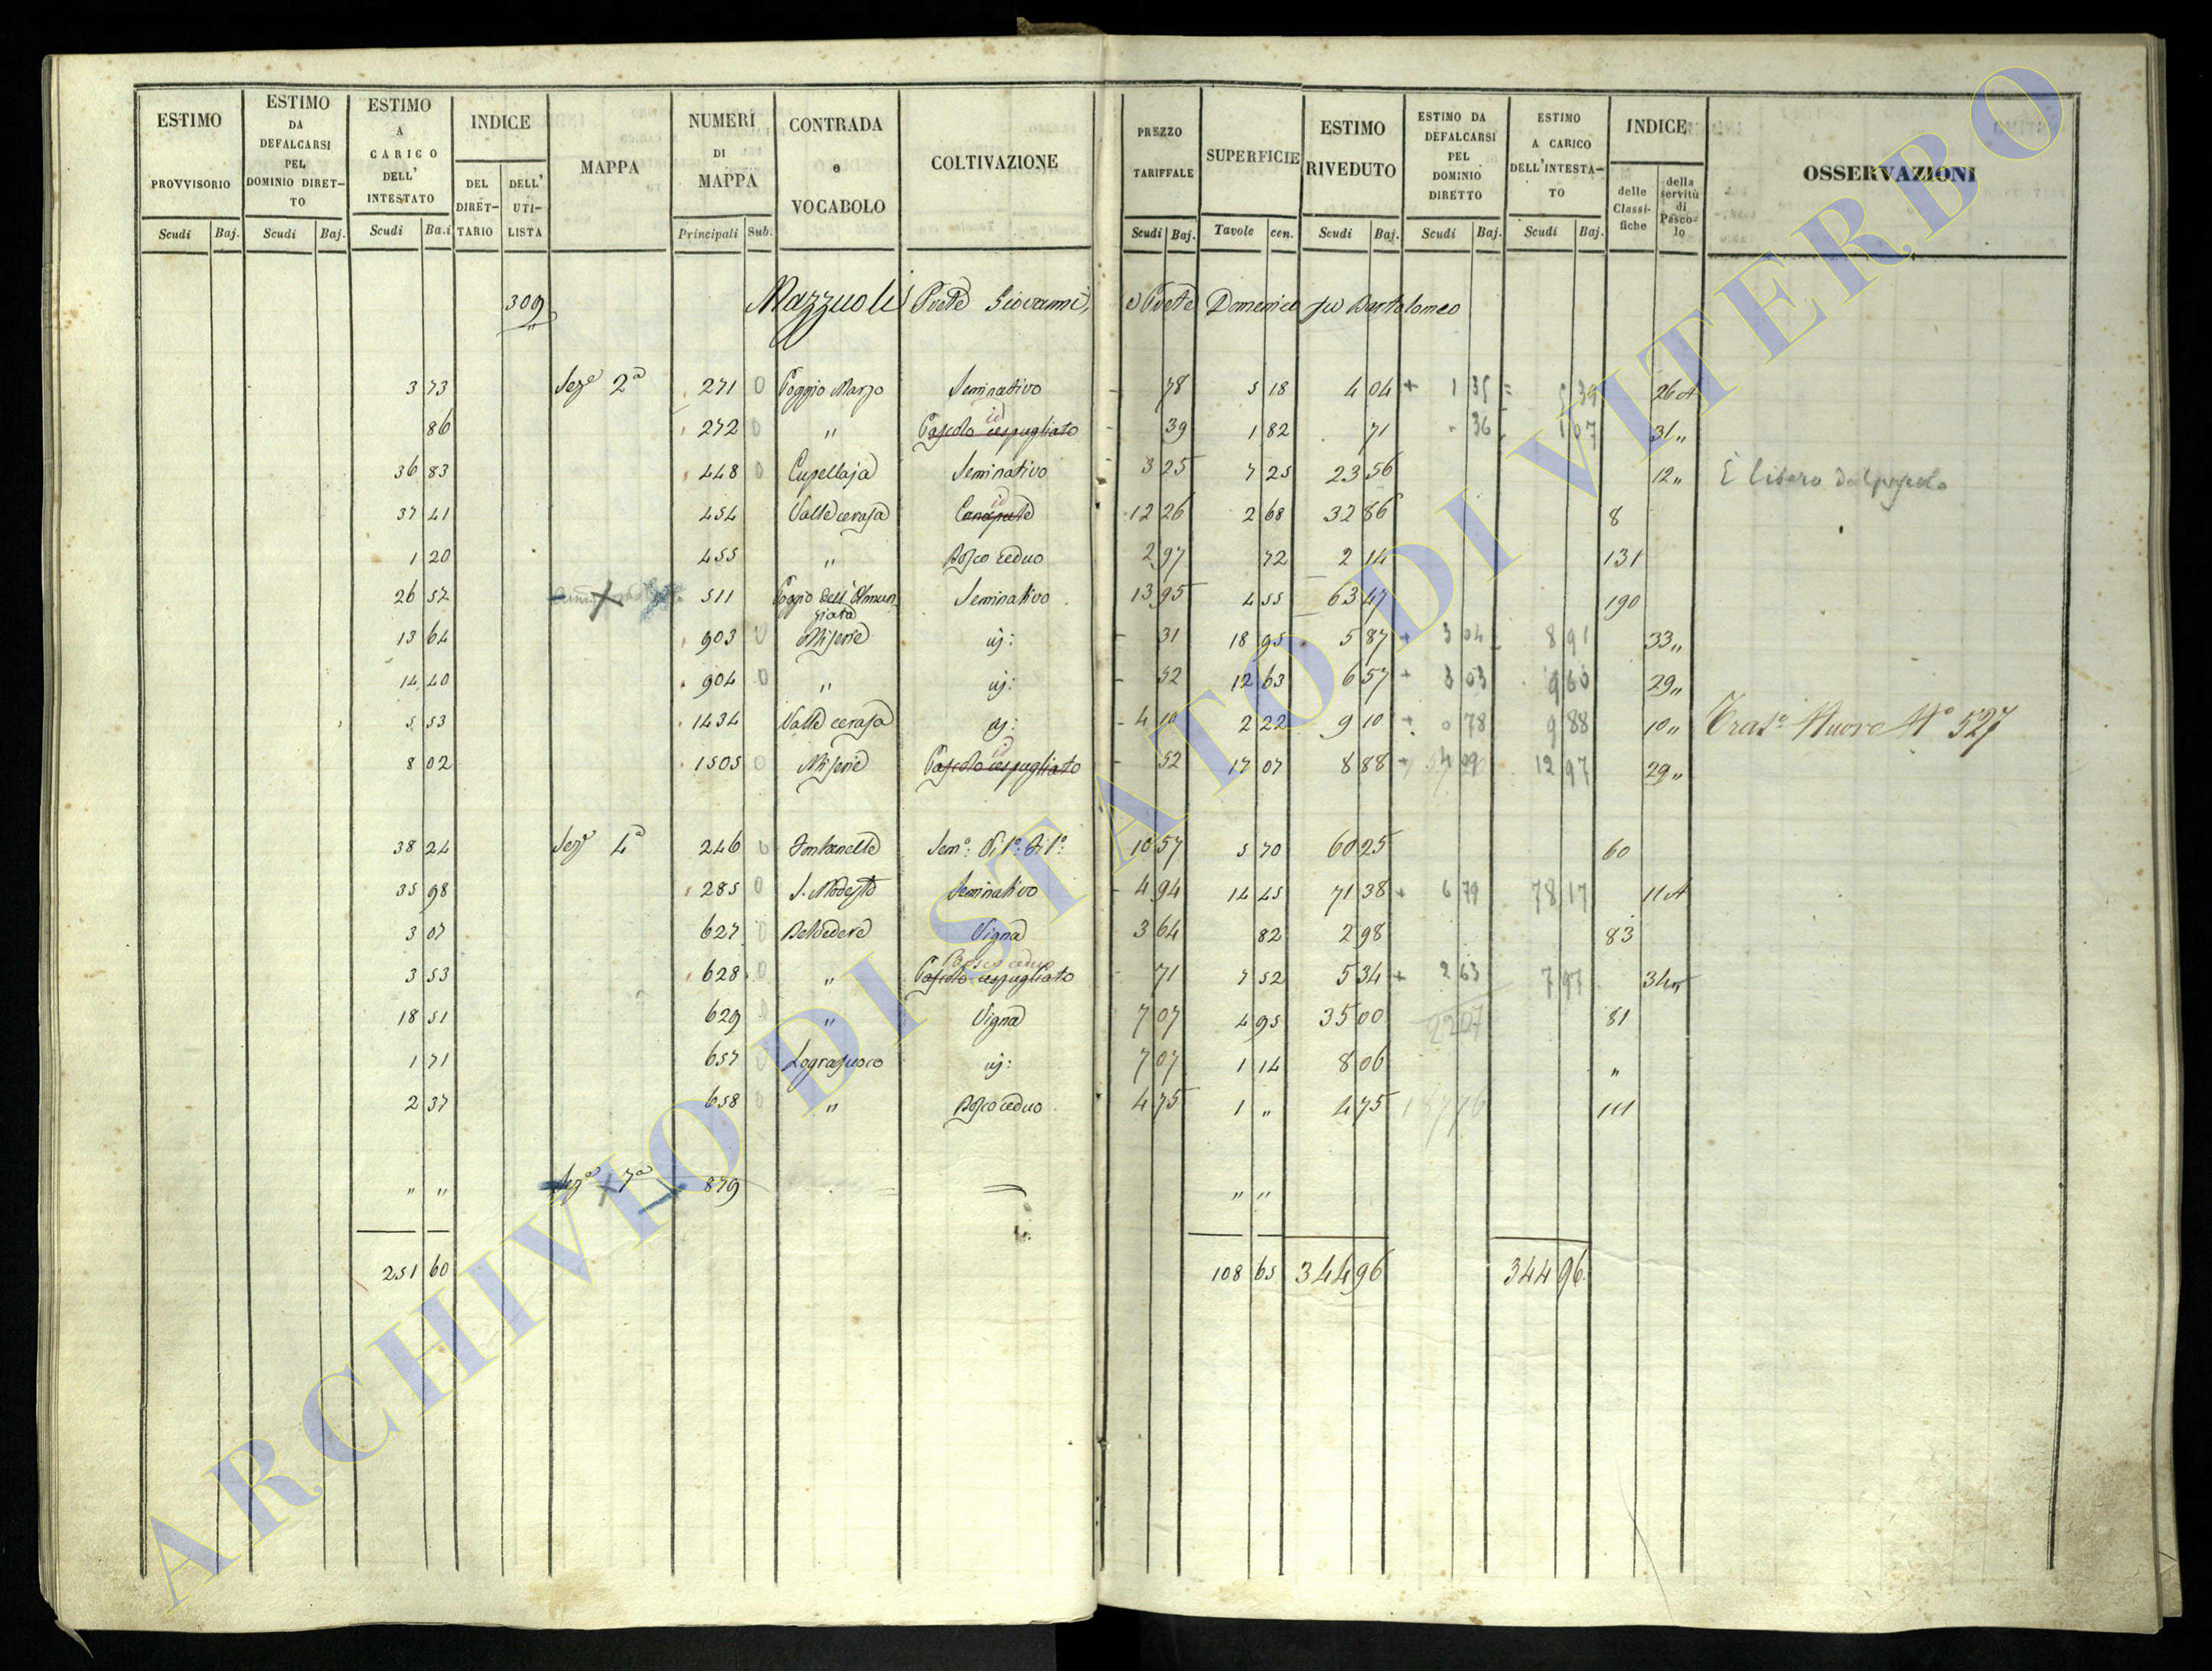 ESTIMO PROVVISORIO Scudi Baj.
ESTIMO DA DEFALCARSI PEL DOMINIO DIRET-TO Scudi Baj.
ESTIMO A CARICO DELL' INTESTATO Scudi Ba.i
INDICE DEL DIRET-TARIO DELL' UTI-LISTA
MAPPA
NUMERI DI MAPPA Principali Sub.
CONTRADA e VOCABOLO
COLTIVAZIONE
PREZZO TARIFFALE Scudi Baj.
SUPERFICIE Tavole cen.
ESTIMO RIVEDUTO Scudi Baj.
ESTIMO DA DEFALCARSI PEL DOMINIO DIRETTO Scudi Baj.
ESTIMO A CARICO DELL'INTESTA-TO Scudi Baj.
INDICE delle Classi-fiche della servitù di Pasco-lo
OSSERVAZIONI
309 Mazzuoli Giovanni, e Domenico fu Bartolomeo
3 73 Seze 2a 271 0 Poggio Marzo Seminativo 78 5 18 4 04 + 1 35 = 5 39 26 A
86 272 0 " Pascolo cespugliato id 39 1 82 71 36 1 07 31 "
36 83 448 0 Cupellaja Seminativo 3 25 7 25 23 56 12 " È libero dal pascolo
37 41 454 Valle cerasa Canapule id 12 26 2 68 32 86 8
1 20 455 " Bosco ceduo 2 97 72 2 14 131
26 52 511 Poggio dell'Annunziata Seminativo 13 95 4 55 63 47 190
13 64 903 0 Miserie id: 31 18 95 5 87 + 3 04 = 8 91 33 "
14 40 904 0 " id: 52 12 63 6 57 + 3 03 9 60 29 "
5 53 1434 Valle cerasa id: 4 10 2 22 9 10 + 0 78 9 88 10 " Tras.o Nuovo No 527
8 02 1505 0 Miserie Pascolo cespugliato id 52 17 07 8 88 + 4 09 12 97 29 "
38 24 Seze 4a 246 0 Fontanelle Sem.o: Vi.to: 10 57 5 70 60 25 60
35 98 285 0 S. Modesto Seminativo 4 94 14 45 71 38 + 6 79 78 17 11 A
3 07 627 0 Belvedere Vigna 3 64 82 2 98 83
3 53 628 0 " Pascolo cespugliato Bosco ceduo 71 7 52 5 34 + 2 63 7 97 34 "
18 51 629 0 " Vigna 7 07 4 95 35 00 22 07 81
1 71 657 0 Lograsuoco id: 7 07 1 14 8 06 "
2 37 658 0 " Bosco ceduo 4 75 1 " 4 75 187 76 111
" " Seza 7a 879 " "
251 60 108 65 344 96 344 96
ARCHIVIO DI STATO DI VITERBO